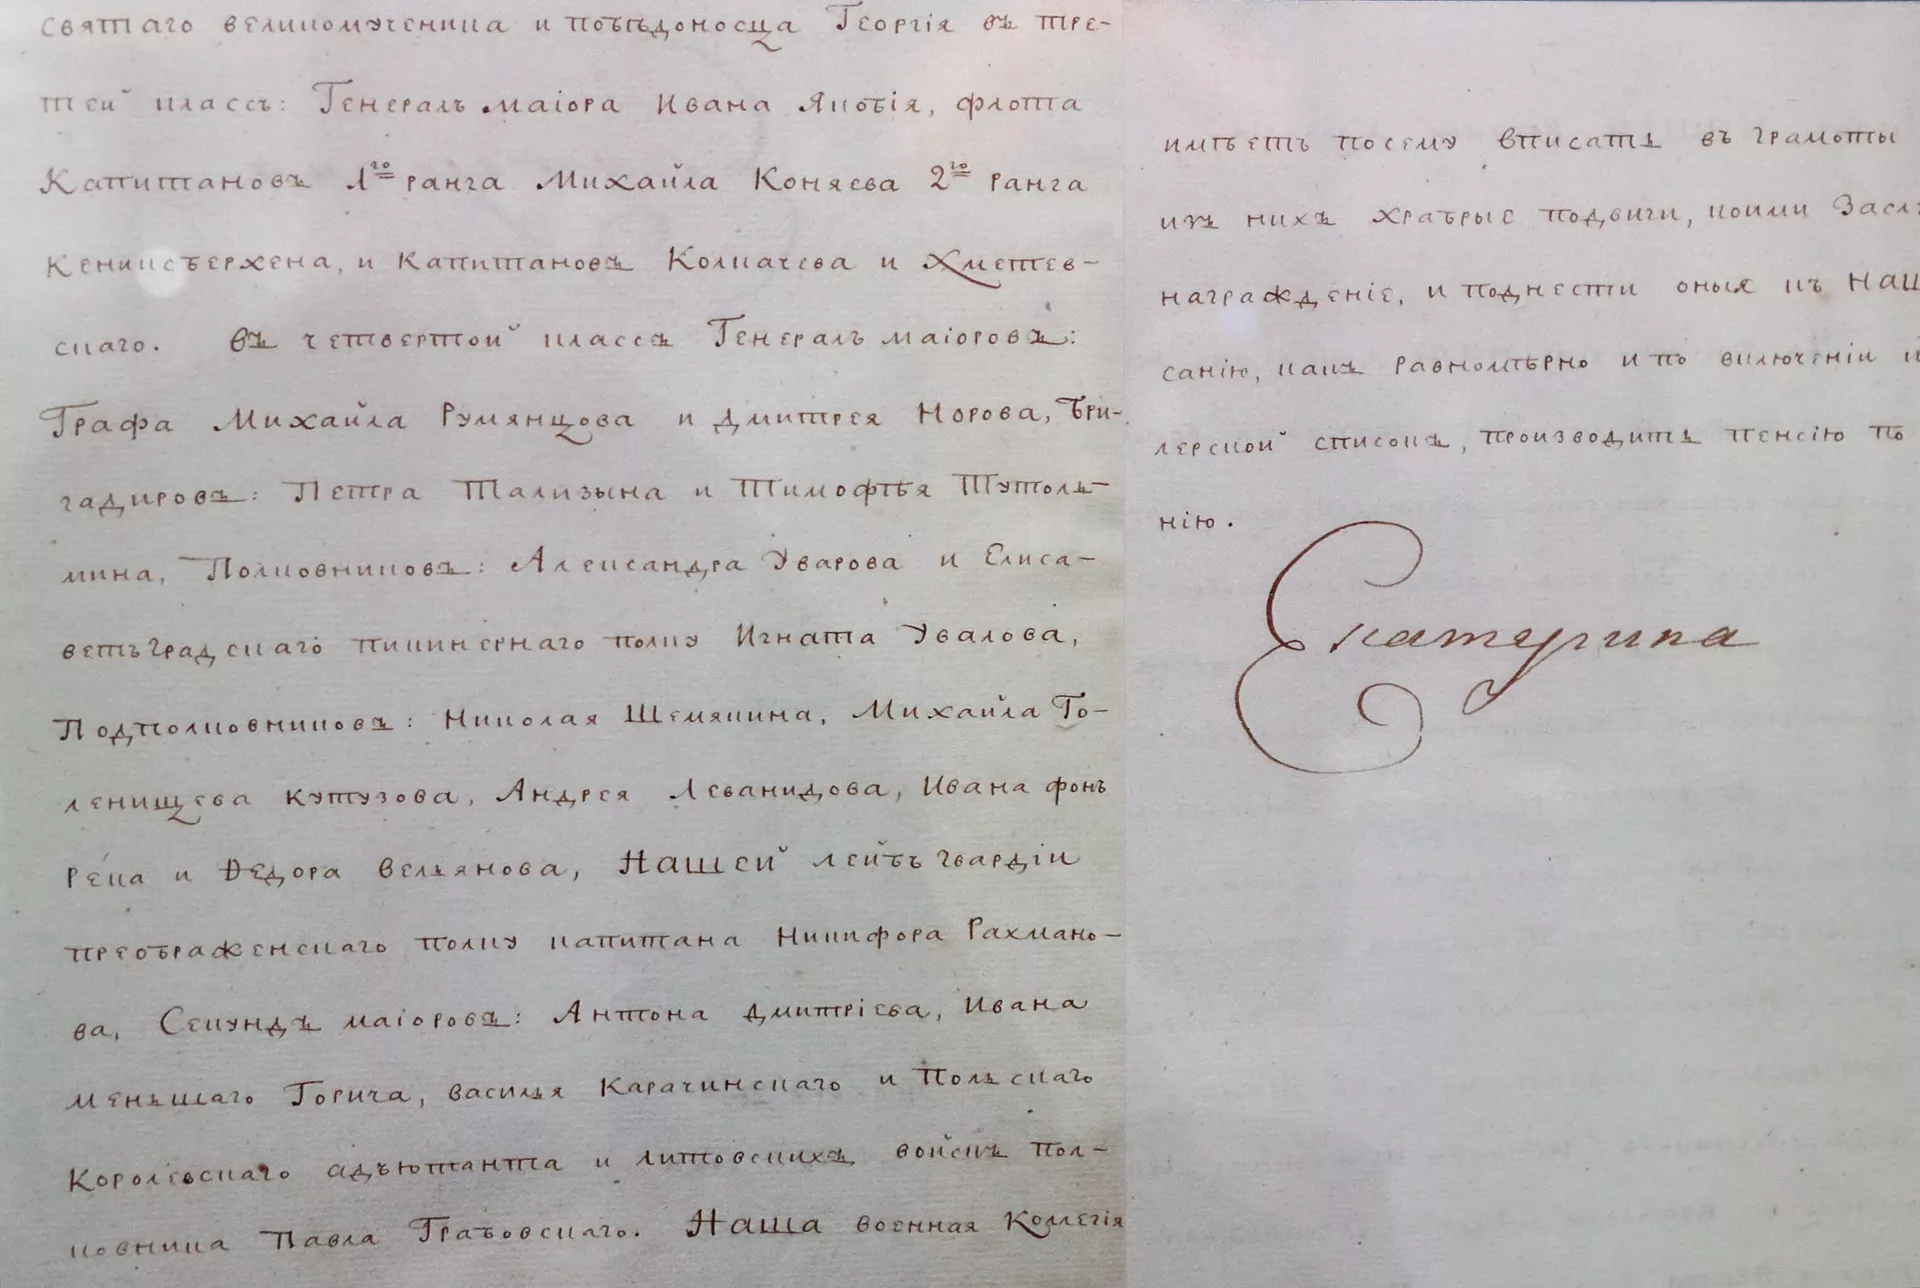 святаго великомученика и побѣдоносца Георгія въ тре-
тей классъ: Генералъ маіора Ивана Якобія, флота
Капитановъ 1го ранга Михайла Коняева 2го ранга
Кениисбергхена, и Капитановъ Колпачева и Хметев-
скаго. въ четвертой классъ Генералъ маіоровъ:
Графа Михайла Румянцова и Дмитрея Норова, Бри-
гадировъ: Петра Тализына и Тимофѣя Тутоль-
мина, Полковниковъ: Александра Уварова и Елиса-
ветъградскаго пикинернаго полку Игната Увалова,
Подполковниковъ: Николая Шемякина, Михайла Го-
ленищева Кутузова, Андрея Леванидова, Ивана фонъ
Река и Ѳедора Вельянова, Нашей лейбъ гвардіи
преображенскаго полку капитана Никифора Рахмано-
ва, Секундъ маіоровъ: Антона Дмитріева, Ивана
меньшаго Горича, василья Карачинскаго и Польскаго
Королевскаго адъютанта и литовскихъ войскъ пол-
ковника Павла Грабовскаго. Наша военная Коллегія
имѣетъ посему вписать въ грамоты
изъ нихъ храбрые подвиги, коими Заслу
награжденіе, и поднести оныя къ Наш
санію, какъ равномѣрно и по включеніи и
лерской списокъ, производить пенсію по
нію.
Екатерина